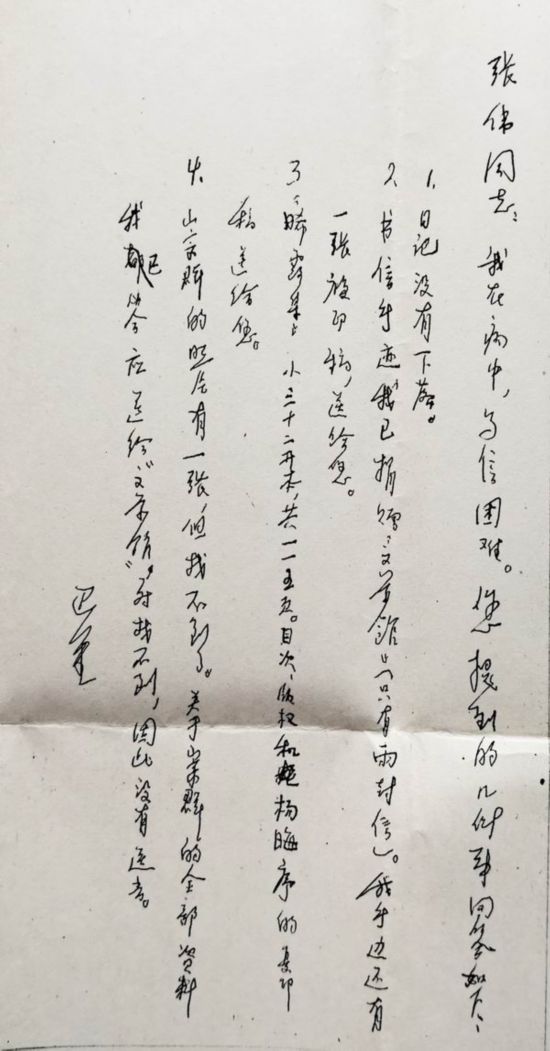 张伟同志：我在病中，写信困难。您提到的几件事回答如下：
1、日记没有下落。
2、书信手迹我已捐赠“文学馆”（只有两封信）。我手边还有
一张复印稿，送给您。
3、“晞露集”小三十二开本，共一一五页。目次、版权和杨晦序的复印
稿送给您。
4、的照片有一张，但找不到了。关于的全部资料
我都已答应送给“文学馆”，因找不到，因此没有送去。
巴金